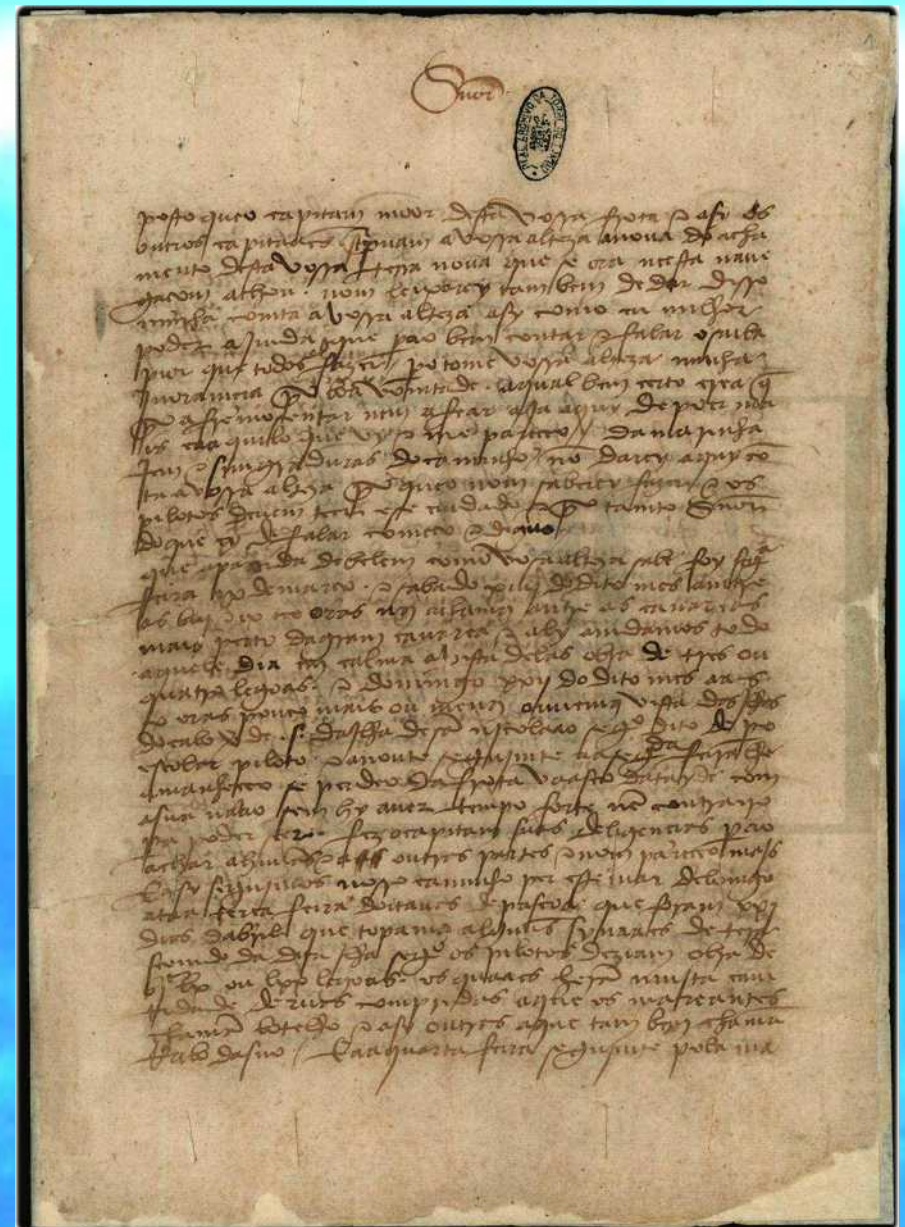 Snor
posto queo capitam moor desta vossa frota e asy os
outros capitaães screpuam a vossa alteza anoua do acha
mento desta vossa terra noua que se ora neesta naue
gaçom achou. nom leixarey tambem de dar disso
minha comta avossa alteza asy como eu milhor
poder ajmda que pᵃ o bem contar e falar o saiba
pior que todos fazer / po tome vossa alteza minha
jnoramçia por boa vomtade. aqual bem certo crea q̃
por afremosentar nem afear aja aquy de poer ma
is ca aquilo que vy e me pareceo / da marinha
jem e simgraduras do caminho nõ darey aquy cõ
ta avossa alteza porque o nom saberey fazer e os
pilotos deuem teer ese cuidado e por tanto Snor
do que ey de falar começo e diguo
que apartida de belem como vosa alteza sabe foy segᵃ
feira ix de março. e sabado xiiij do dito mes amtre
as biij e ix oras nos achamos antre as canareas
mais perto da gram canarea e aly amdamos todo
aquele dia em calma avista delas obra de tres ou
quatro legoas. e domingo xxij do dito mes aas x
oras pouco mais ou menos ouuemos vista das jlhas
do cabo vᵉ de .s. da jlha de sã njcolaao segº dito de pº
escolar piloto. e anoute segujmte aa segᵈᵃ feira lhe
amanheceo se perdeo da frota vaasco datayde com
asua naao sem hy auer tempo forte nẽ contrairo
pᵃ poder seer. fez o capitam suas deligencias pᵃ o
achar ahuũas e outras partes e nom pareceo mais
E asy segujmos nosso caminho per este mar delomgo
ataa terça feira doitauas de pascoa que foram xxj
dias dabril que topamos alguũs synaaes de terra
seemdo da dita jlha segº os pilotos deziam obra de
bjᶜ lx ou lxx legoas. os quaaes herã mujta cam
tidade deruas compridas aque os mareantes
chamã botelho e asy outras aque tam bem chamã
Rabo dasno / E aaquarta feira segujmte pola ma